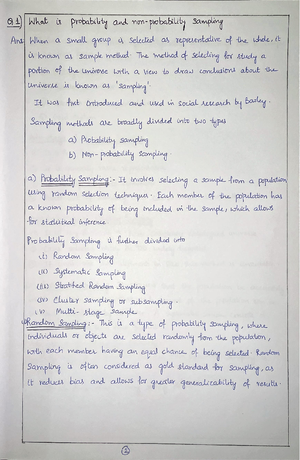 Q.1) What is Probability and non-probability Sampling
Ans When a small group is selected as representative of the whole, it
is known as sample method. The method of selecting for study a
portion of the universe with a view to draw conclusions about the
universe is known as 'sampling'.
It was first introduced and used in social research by Bowley.
Sampling methods are broadly divided into two types
a) Probability sampling
b) Non-probability sampling.
a) Probability Sampling:- It involves selecting a sample from a population
using random selection techniques. Each member of the population has
a known probability of being included in the sample, which allows
for statistical inference.
Probability Sampling is further divided into
(i) Random Sampling
(ii) Systematic Sampling
(iii) Stratified Random Sampling
(iv) Cluster sampling or subsampling.
(v) Multi-stage sample
Random Sampling:- This is a type of probability sampling, where
individuals or objects are selected randomly from the population,
with each member having an equal chance of being selected. Random
Sampling is often considered as gold standard for sampling, as
it reduces bias and allows for greater generalicability of results.